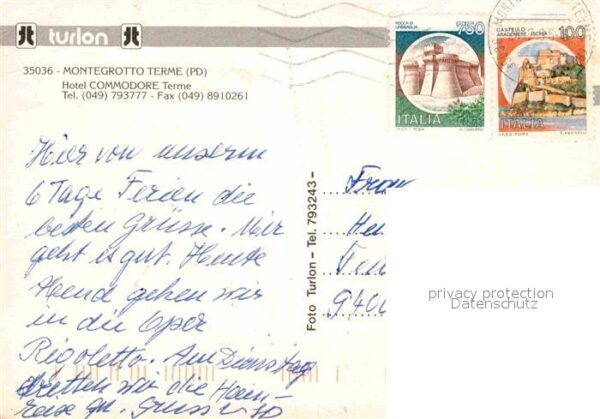 turlon
35036 - MONTEGROTTO TERME (PD)
Hotel COMMODORE Terme
Tel. (049) 793777 - Fax (049) 8910261
ROCCA DI URBISAGLIA
750
ITALIA
CASTELLO ARAGONESE ISCHIA
100
ITALIA
Hier von unserm
6 Tage Ferien die
besten Grüsse. Mir
geht es gut. Heute
Abend gehen wir
in die Oper
Rigoletto. Am Dienstag
tretten wir die Heim-
reise an. Gruss
Foto Turlon - Tel. 793243 -
Frau
940
privacy protection
Datenschutz